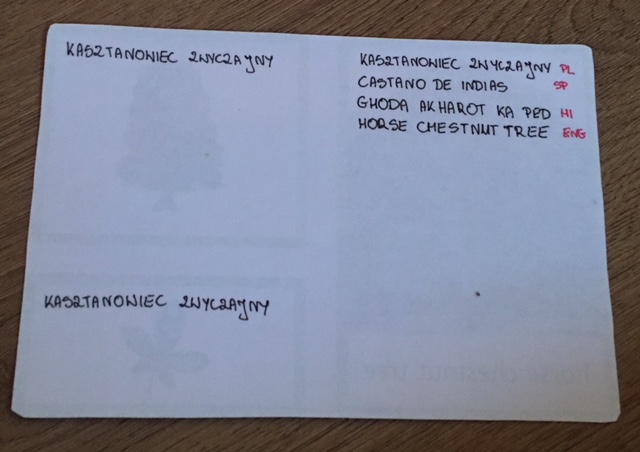 KASZTANOWIEC ZWYCZAJNY
KASZTANOWIEC ZWYCZAJNY PL
CASTANO DE INDIAS SP
GHODA AKHAROT KA PED HI
HORSE CHESTNUT TREE ENG
KASZTANOWIEC ZWYCZAJNY
horse chestnut tree